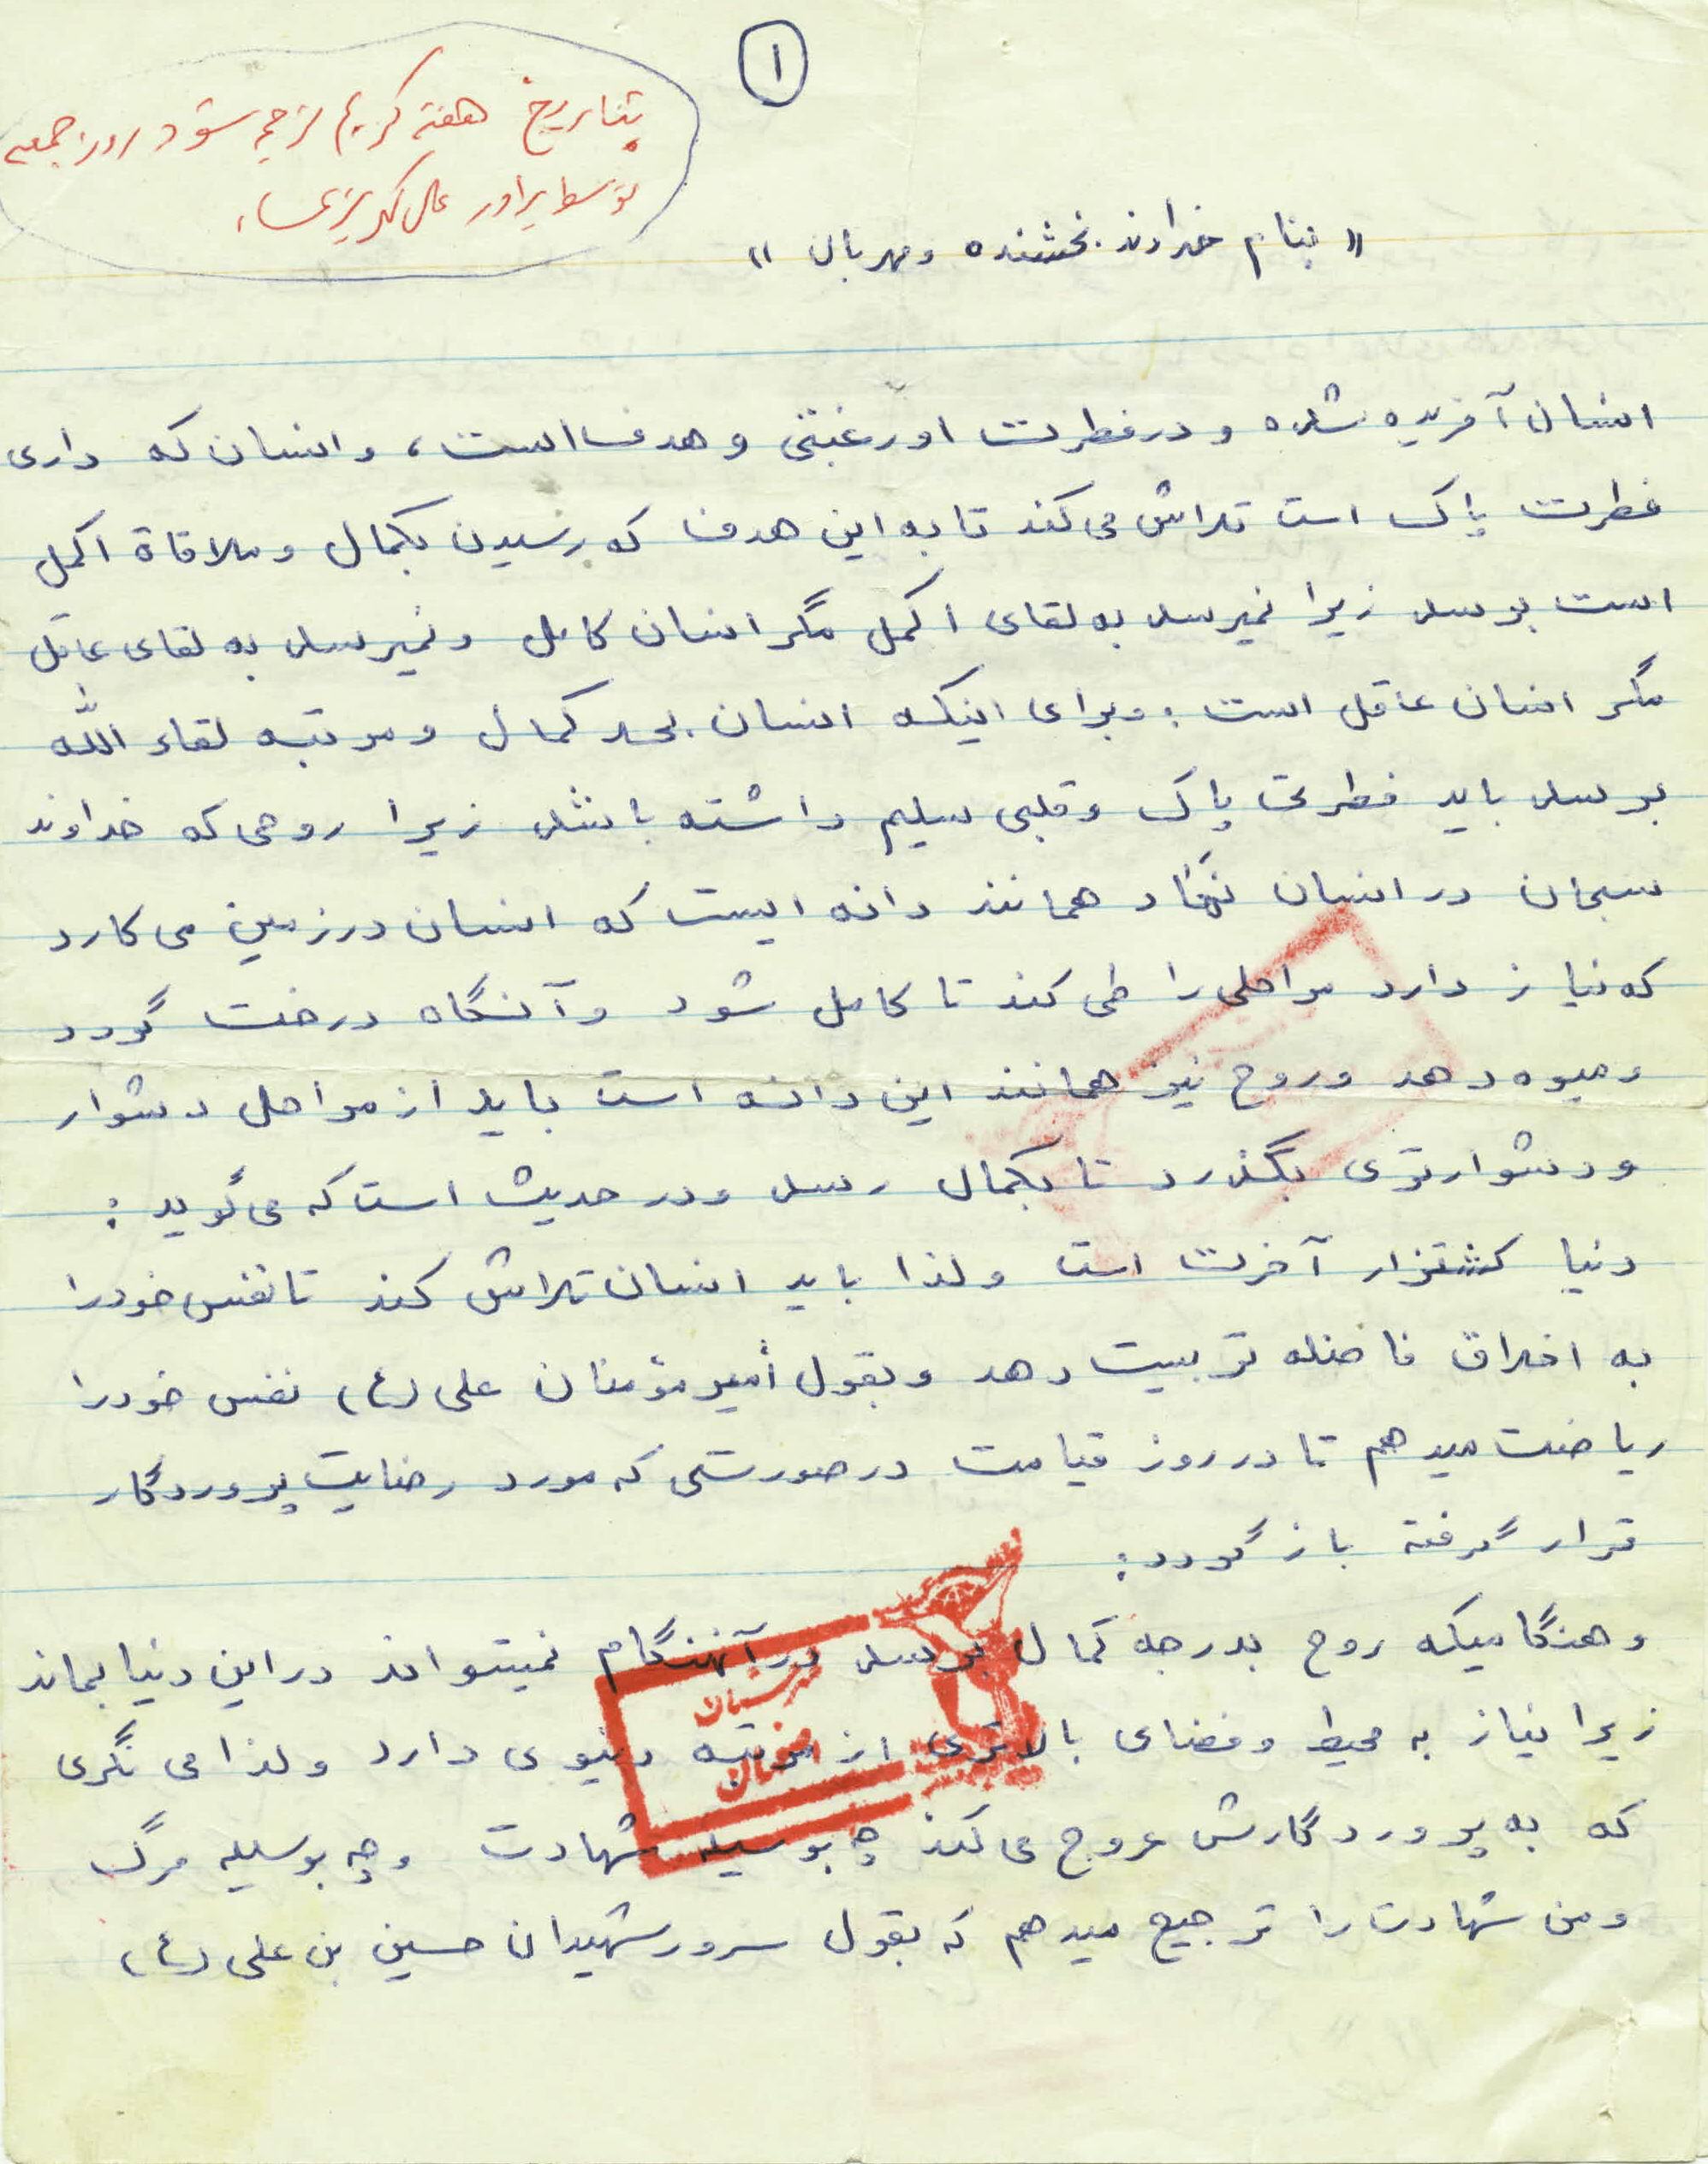 ۱
بتاریخ هفته شود روز جمعه
توسط برادر
« بنام خداوند بخشنده ومهربان »
انسان آفریده شده و در فطرت او رغبتی و هدف است ، و انسان که داری
فطرت پاک است تلاش می کند تا به این هدف که رسیدن بکمال و ملاقاة اکمل
است برسد زیرا نمیرسد به لقای اکمل مگر انسان کامل و نمیرسد به لقای عاقل
مگر انسان عاقل است : وبرای اینکه انسان بحد کمال ومرتبه لقاء الله
برسد باید فطرتی پاک وقلبی سلیم داشته باشد زیرا روحی که خداوند
سبحان در انسان نهاد همانند دانه ایست که انسان در زمین می کارد
که نیاز دارد مراحلی را طی کند تا کامل شود وآنگاه درخت گردد
ومیوه دهد وروح نیز همانند این دانه است باید از مراحل دشوار
ودشوارتری بگذرد تا بکمال رسد ودر حدیث است که می گوید :
دنیا کشتزار آخرت است ولذا باید انسان تلاش کند تا نفس خودرا
به اخلاق فاضله تربیت دهد وبقول أمیر مؤمنان علی (ع) نفس خودرا
ریاضت میدهم تا در روز قیامت در صورتی که مورد رضایت پروردگار
قرار گرفته باز گردد :
وهنگامیکه روح بدرجه کمال برسد در آنهنگام نمیتواند در این دنیا بماند
زیرا نیاز به محیط وفضای بالاتری از مرتبه دنیوی دارد ولذا می نگری
که به پروردگارش عروج می کند چه بوسیله شهادت وچه بوسیله مرگ
ومن شهادت را ترجیح میدهم که بقول سرور شهیدان حسین بن علی (ع)